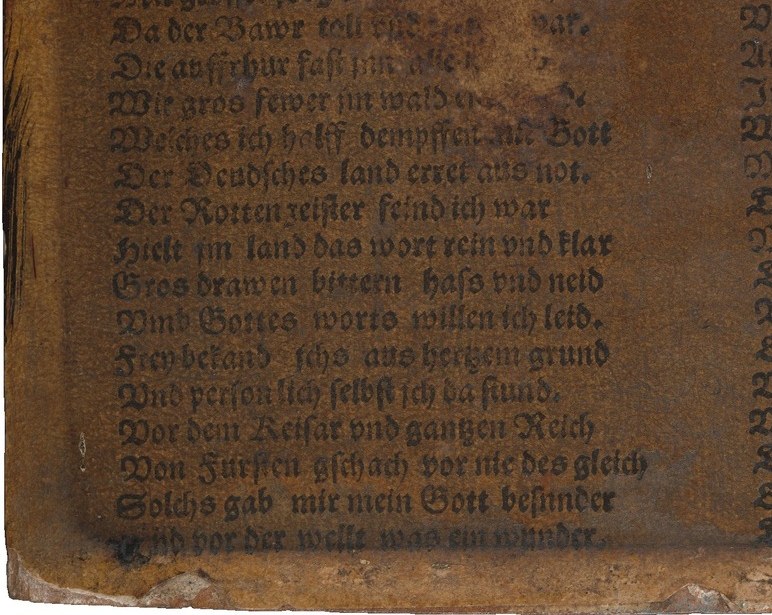 Da der Bawr toll vnd
Die auffrhur fast jnn alle
Wie gros fewer jm wald
Welches ich halff dempffen mit Gott
Der Deudsches land erret aus not.
Der Rottengeister feind ich war
Hielt jm land das wort rein vnd klar
Gros drawen bittern hass vnd neid
Vmb Gottes worts willen ich leid.
Frey bekand ichs aus hertzem grund
Vnd personlich selbst jch da stund.
Vor dem Keisar vnd gantzen Reich
Von Fursten gschach vor nie des gleich
Solchs gab mir mein Gott besunder
Vnd vor der wellt was ein wunder.